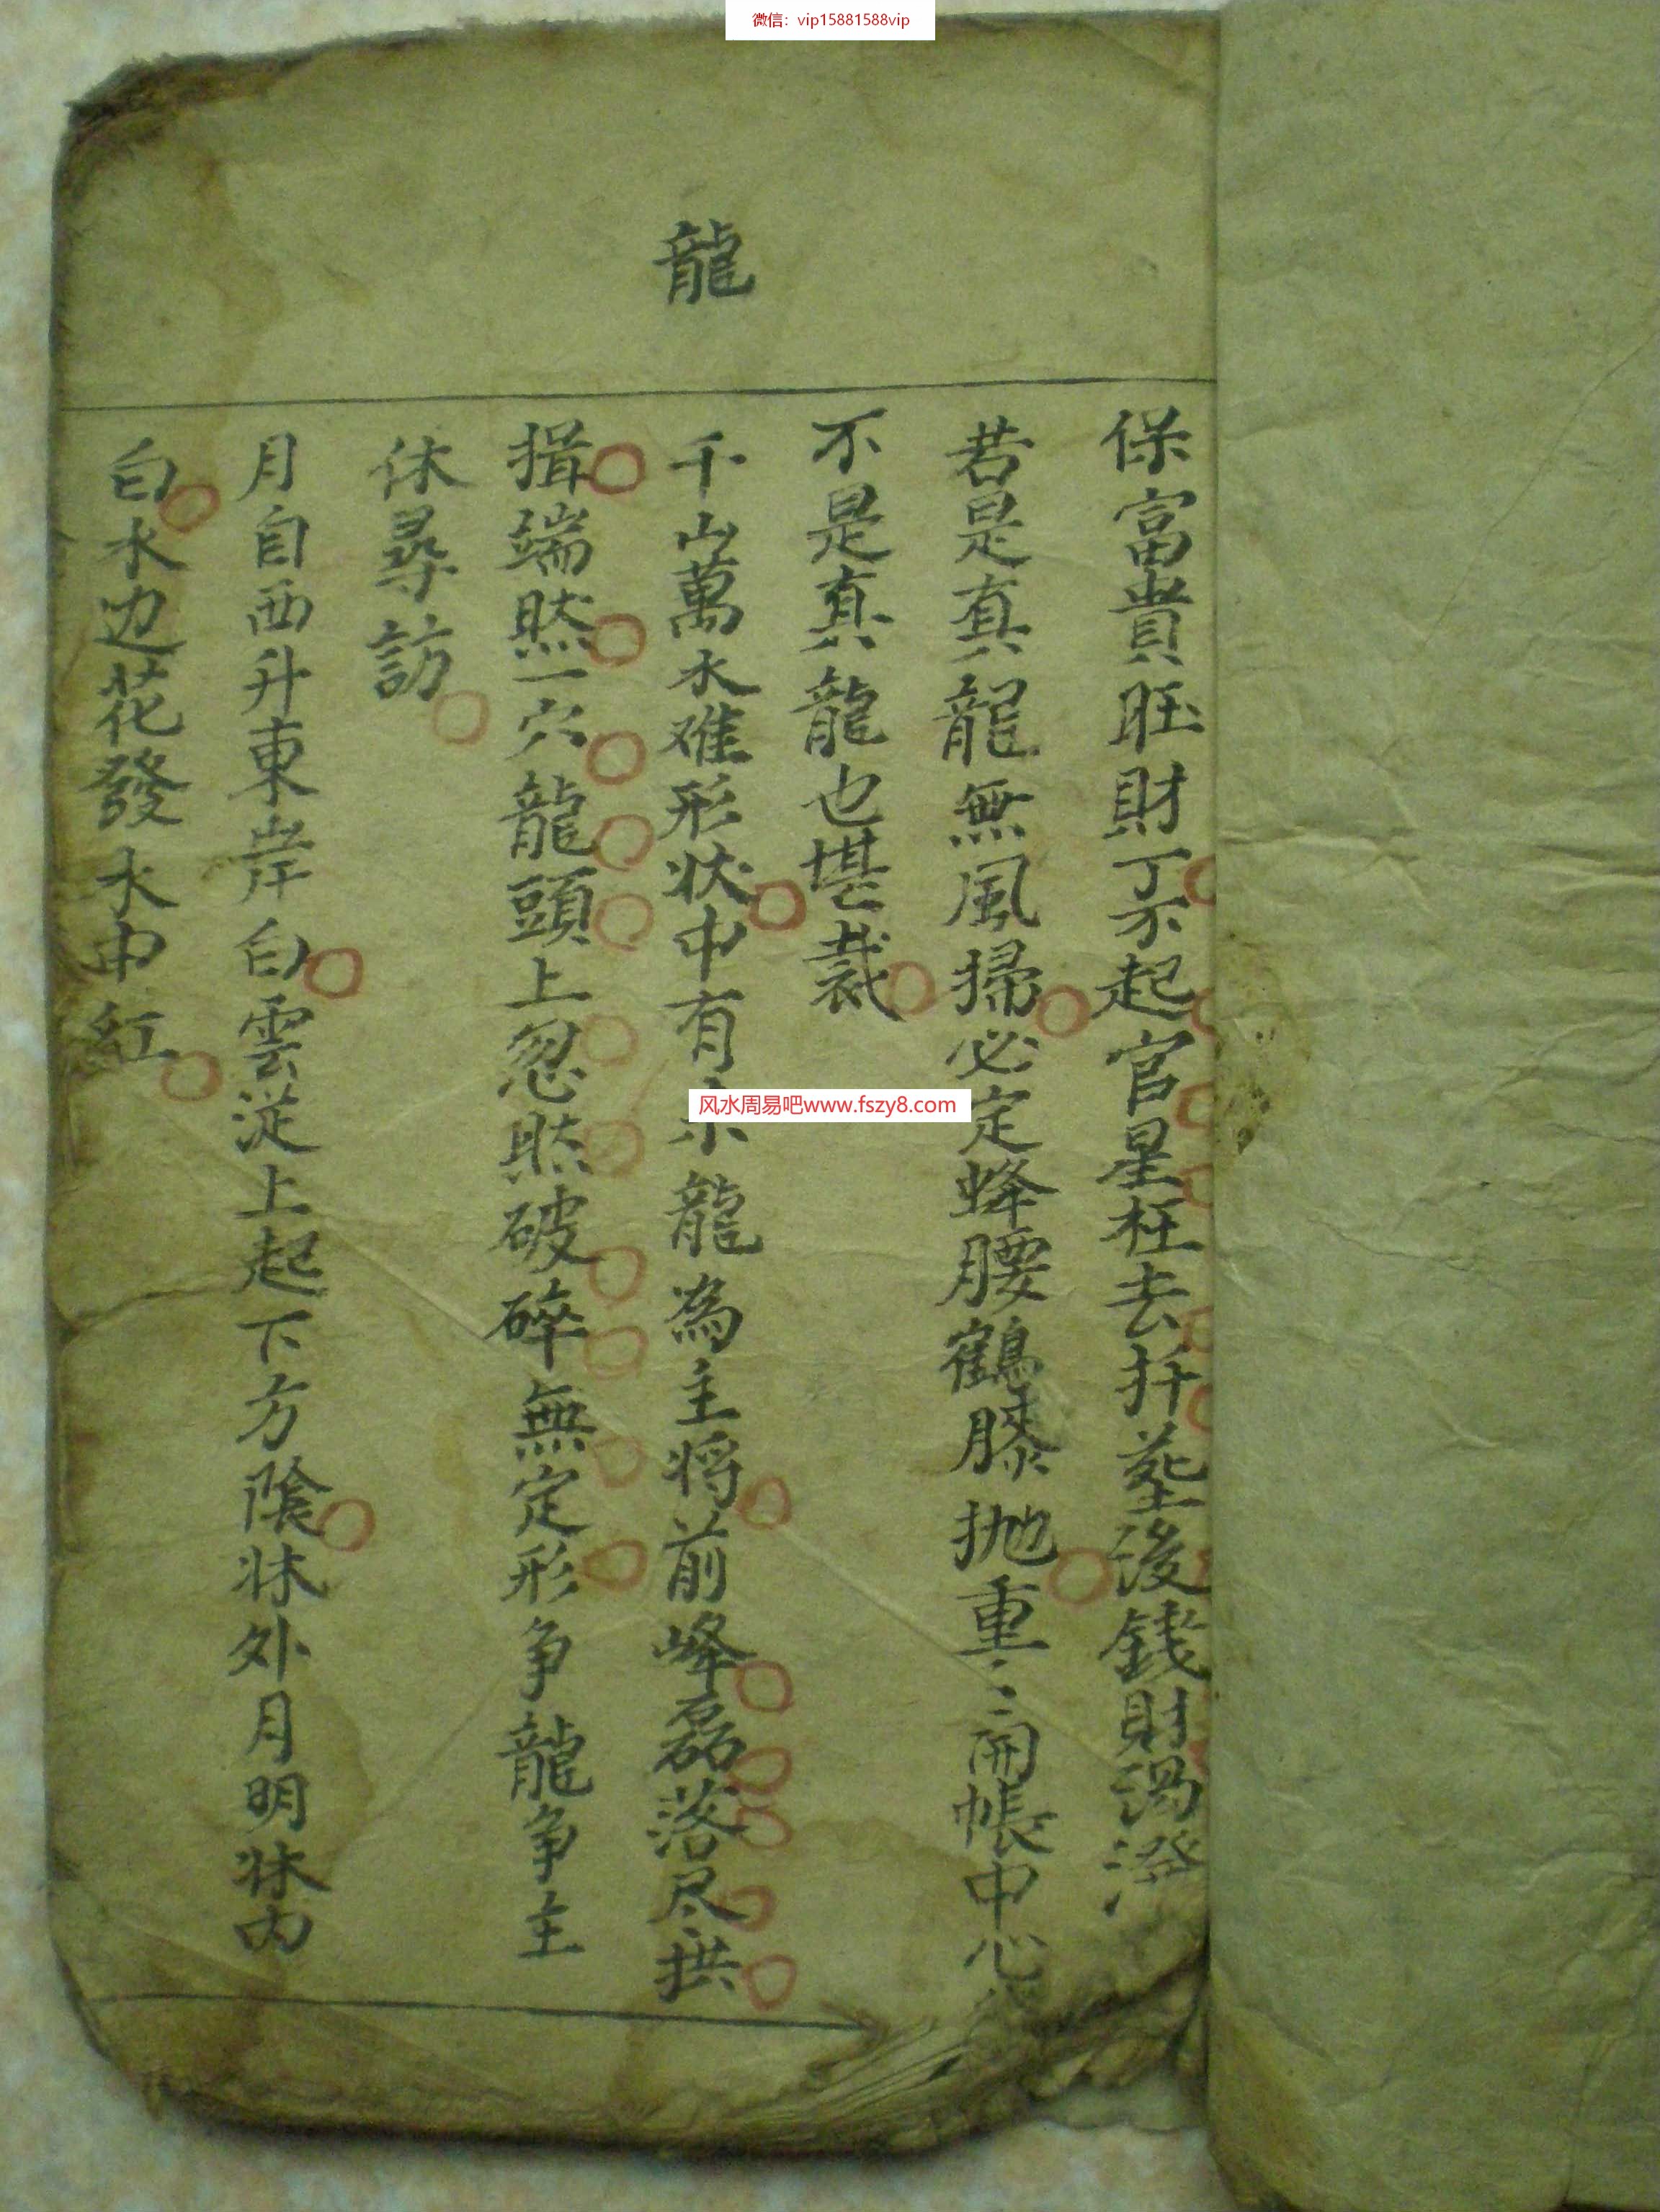 微信：vip15881588vip
龍
保富貴旺財丁不起官星枉去扦塟後錢財渴潑
若是真龍無風掃必定蜂腰鶴膝抛重〻開帳中心
不是真龍也堪裁
千山萬水难形状中有小龍為主将前峰磊落尽拱
揖端然一穴龍頭上忽然破碎無定形争龍争主
休尋訪
月自西升東岸白雲從上起下方陰牀外月明牀内
白水边花發水中紅
风水周易吧www.fszy8.com